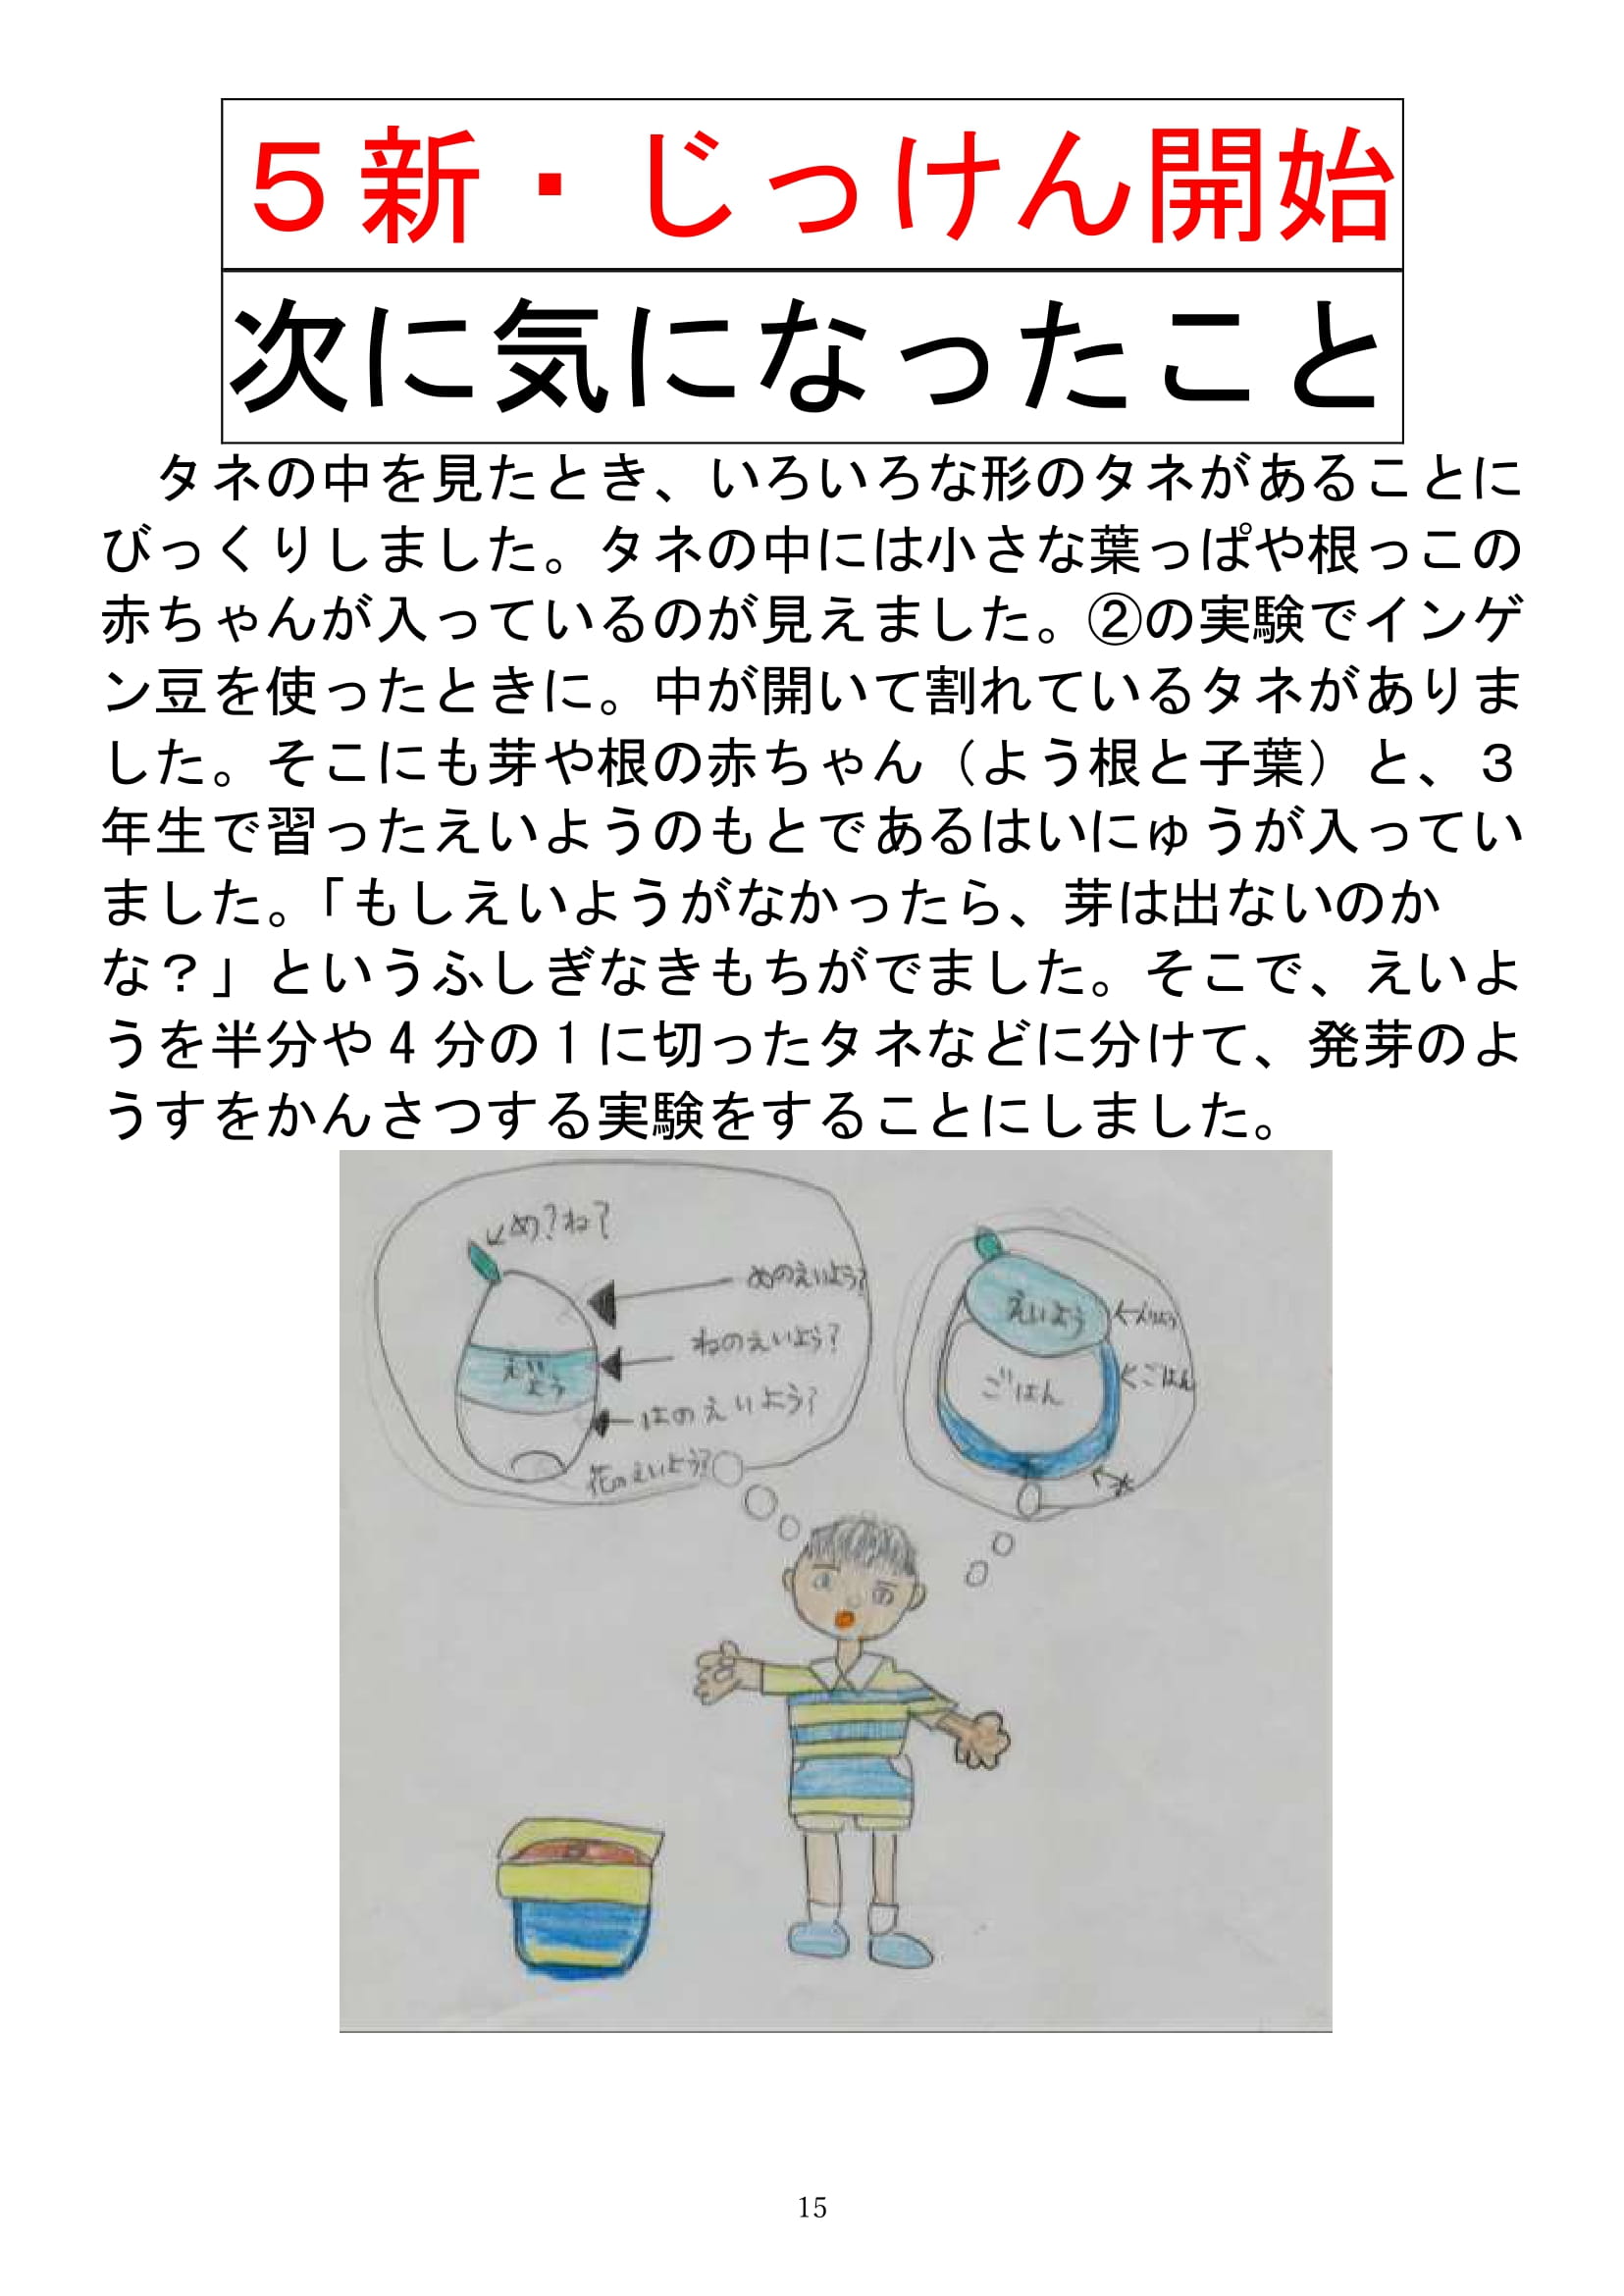 ５新・じっけん開始
次に気になったこと
タネの中を見たとき、いろいろな形のタネがあることに
びっくりしました。タネの中には小さな葉っぱや根っこの
赤ちゃんが入っているのが見えました。②の実験でインゲ
ン豆を使ったときに。中が開いて割れているタネがありま
した。そこにも芽や根の赤ちゃん（よう根と子葉）と、３
年生で習ったえいようのもとであるはいにゅうが入ってい
ました。「もしえいようがなかったら、芽は出ないのか
な？」というふしぎなきもちがでました。そこで、えいよ
うを半分や４分の１に切ったタネなどに分けて、発芽のよ
うすをかんさつする実験をすることにしました。
め？ね？
めのえいよう？
ねのえいよう？
えいよう
はのえいよう？
花のえいよう？
えいよう
ごはん
ごはん
15